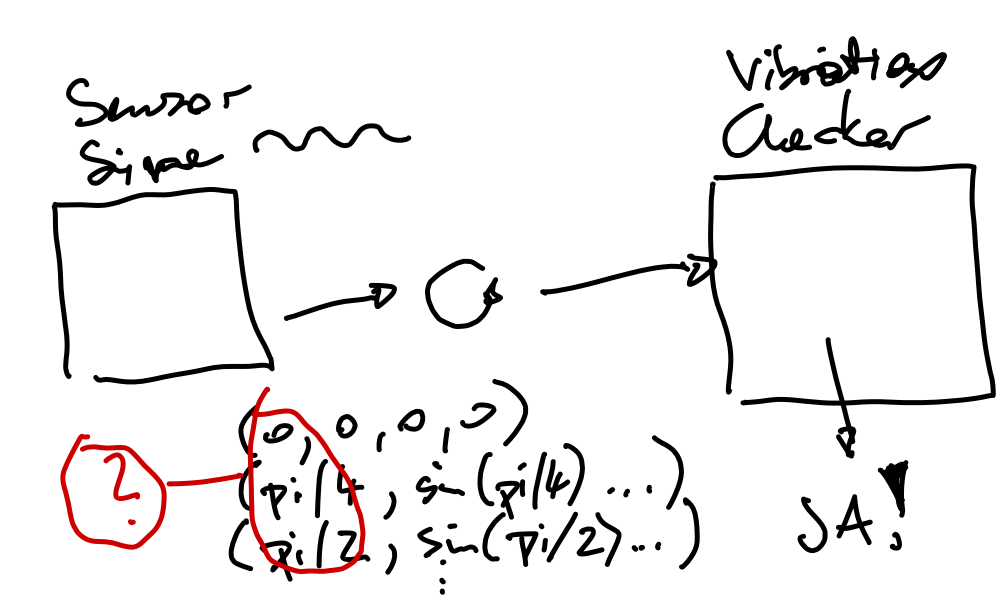 Sensor
Signal
Vibration
Checker
(0, 0, 0, 0)
(pi/4, sin(pi/4) ...)
(pi/2, sin(pi/2) ...)
⋮
?
JA!